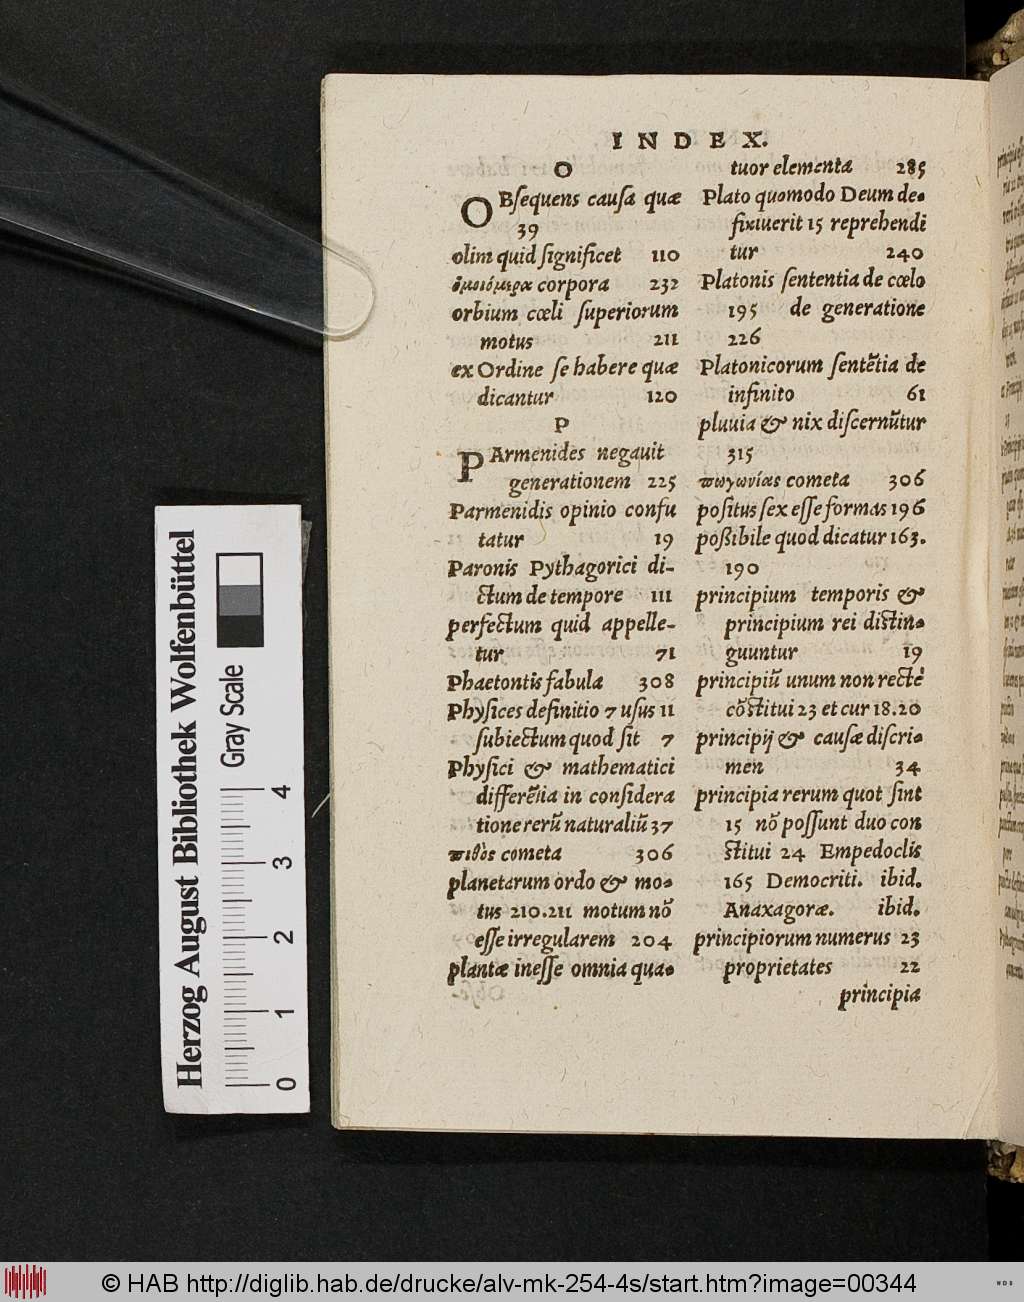 INDEX.
O
OBſequens cauſa quæ
39
olim quid ſignificet 110
ὁμοιόμερα corpora 232
orbium cœli ſuperiorum
motus 211
ex Ordine ſe habere quæ
dicantur 120
P
PArmenides negauit
generationem 225
Parmenidis opinio confu
tatur 19
Paronis Pythagorici di-
ctum de tempore 111
perfectum quid appelle-
tur 71
Phaetontis fabula 308
Phyſices definitio 7 uſus 11
ſubiectum quod ſit 7
Phyſici & mathematici
differẽtia in conſidera
tione rerũ naturaliũ 37
πιθὸς cometa 306
planetarum ordo & mo-
tus 210.211 motum nõ
eſſe irregularem 204
plantæ ineſſe omnia qua-
tuor elementa 285
Plato quomodo Deum de-
fixiuerit 15 reprehendi
tur 240
Platonis ſententia de cœlo
195 de generatione
226
Platonicorum ſentẽtia de
infinito 61
pluuia & nix diſcernũtur
315
πωγωνίας cometa 306
poſitus ſex eſſe formas 196
poßibile quod dicatur 163.
190
principium temporis &
principium rei diſtin-
guuntur 19
principiũ unum non rectè
cõſtitui 23 et cur 18.20
principij & cauſæ diſcri-
men 34
principia rerum quot ſint
15 nõ poſſunt duo con
ſtitui 24 Empedoclis
165 Democriti. ibid.
Anaxagoræ. ibid.
principiorum numerus 23
proprietates 22
principia
Herzog August Bibliothek Wolfenbüttel
Gray Scale
0 1 2 3 4
© HAB http://diglib.hab.de/drucke/alv-mk-254-4s/start.htm?image=00344